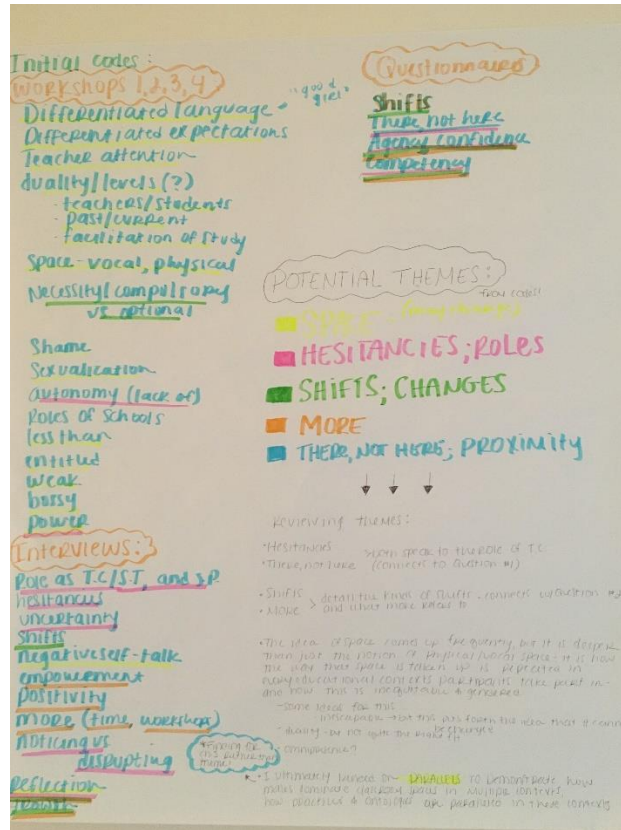 Initial codes:
Workshops 1,2,3,4
Differentiated language - "good girl"
Differentiated expectations
Teacher attention
duality/levels (?)
- teachers/students
- past/current
- facilitation of study
Space - vocal, physical
Necessity/compulsory
vs optional
Shame
Sexualication
autonomy (lack of)
Roles of Schools
less than
entitled
weak
bossy
power
Interviews:
Role as T.C/S.T, and J.P.
hesitancies
uncertainty
Shifts
negative self-talk
empowerment
positivity
more (time, workshops)
noticing vs
disrupting
Reflection
Growth
Questionnaires
Shifts
There not here
Agency confidence
Competency
POTENTIAL THEMES:
from codes!
SPACE
HESITANCIES; ROLES
SHIFTS; CHANGES
MORE
THERE, NOT HERE; PROXIMITY
Reviewing themes:
• Hesitancies
• There, not here > both speak to the role of T.C.
(connects to question #1)
• Shifts
• More > detail the kinds of shifts - connects w/question
and what more refers to
• The idea of space comes up frequently, but it is deeper
than just the notion of physical/vocal space - it is how
the way that space is taken up is repeated in
every educational contexts participants take part in -
and how this is inequitable & gendered.
- some ideas for this
- but this puts forth the idea that it
- duality - but not quite the right fit
- omnipresence?
• I ultimately landed on - PARALLELS to demonstrate how
males dominate spaces in multiple contexts,
how practices & ontologies are paralleled in these contexts